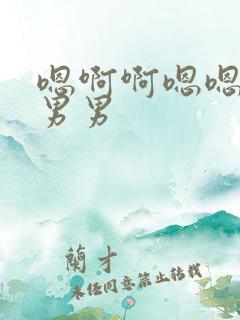 嗯啊啊嗯嗯
男男
蘭才
未经同意禁止转载